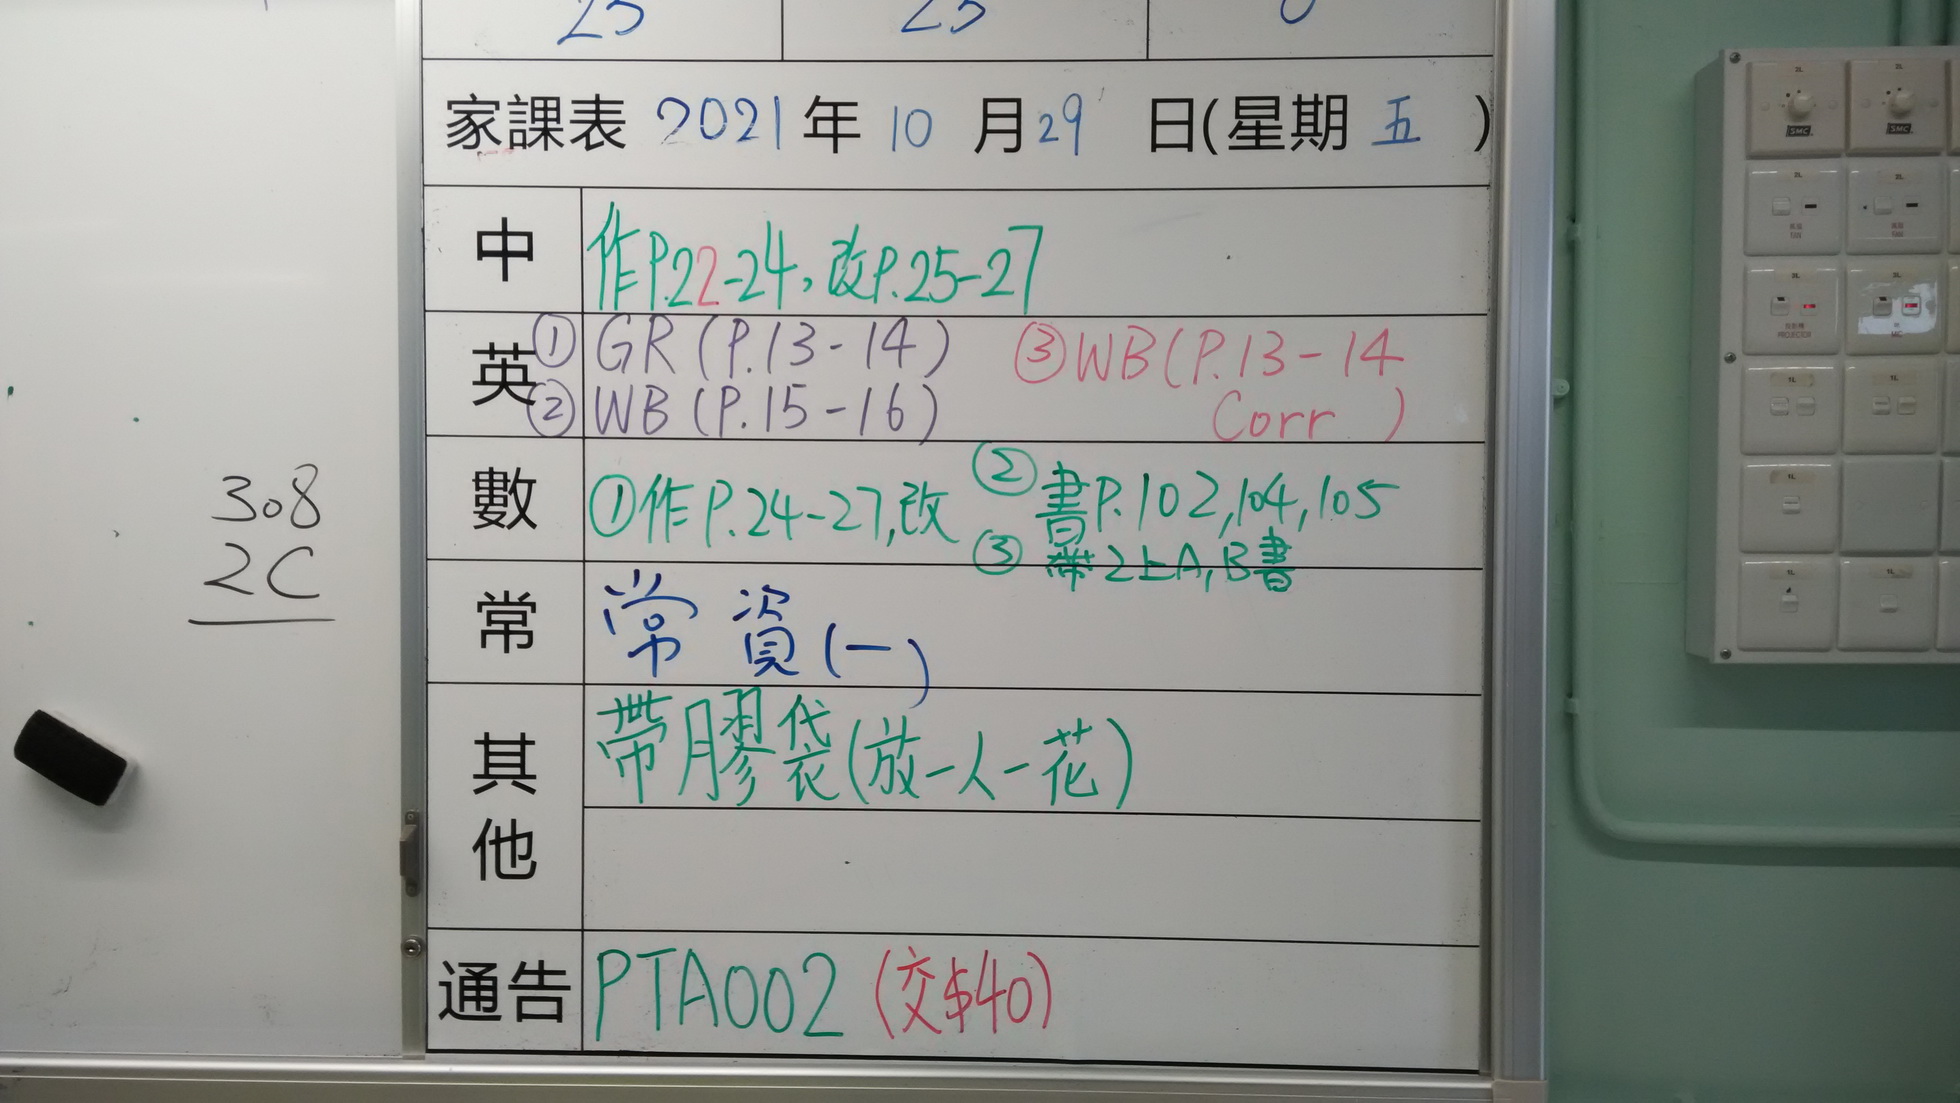 家課表 2021 年 10 月 29 日(星期 五 )
中 作P.22-24，改P.25-27
英 ① GR (P.13-14) ③ WB (P.13-14
② WB (P.15-16) Corr )
數 ①作P.24-27,改 ② 書P.102,104,105
③ 帶2上A,B書
308
2C
常 常 資(一)
其他 帶膠袋(放一人一花)
通告 PTA002 (交$40)
SMC SMC
FAN FAN
PROJECTOR MC